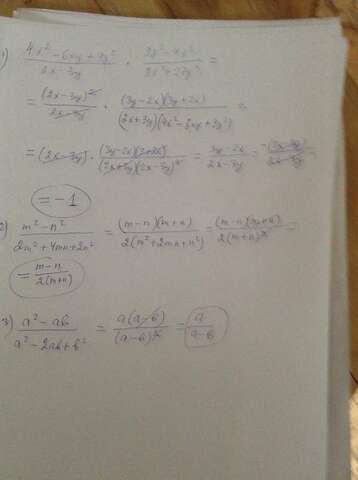 1) (4x² - 6xy + 9y²)/(2x - 3y) · (9y² - 4x²)/(8x³ + 27y³) =
= (2x - 3y)²/(2x - 3y) · (3y - 2x)(3y + 2x)/((2x + 3y)(4x² - 6xy + 9y²)) =
= (2x - 3y) · (3y - 2x)(3y + 2x)/((2x + 3y)(2x - 3y)²) = (3y - 2x)/(2x - 3y) = -(2x - 3y)/(2x - 3y) =
= -1
2) (m² - n²)/(2m² + 4mn + 2n²) = (m - n)(m + n)/(2(m² + 2mn + n²)) = (m - n)(m + n)/(2(m + n)²) =
= (m - n)/(2(m + n))
3) (a² - ab)/(a² - 2ab + b²) = a(a - b)/(a - b)² = a/(a - b)